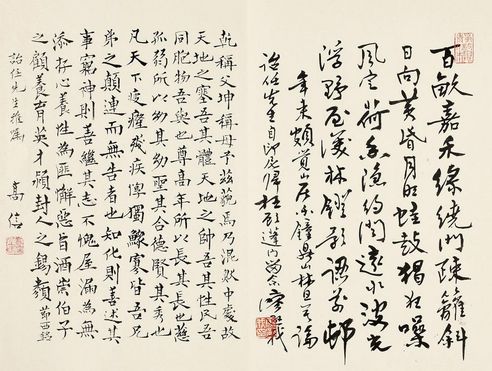 百畝嘉禾綠繞門疎籬斜
日向黃昏月明蛙鼓猶狂噪
風定荷香聞遠水波光
浮野屋淺林燈影語前邨
年來頗賞山居鐘鼎山林且莫論
詒任先生自印尼歸
乾稱父坤稱母予茲藐焉乃混然中處故
天地之塞吾其體天地之帥吾其性民吾
同胞物吾與也尊高年所以長其長也慈
孤弱所以幼其幼聖其合德賢其秀也
凡天下疲癃殘疾惸獨鰥寡皆吾兄
弟之顛連而無告者也知化則善述其
事窮神則善繼其志不愧屋漏為無
忝存心養性為匪懈惡旨酒崇伯子
之顧養育英才潁封人之錫類 節西銘
詒任先生雅屬
高信